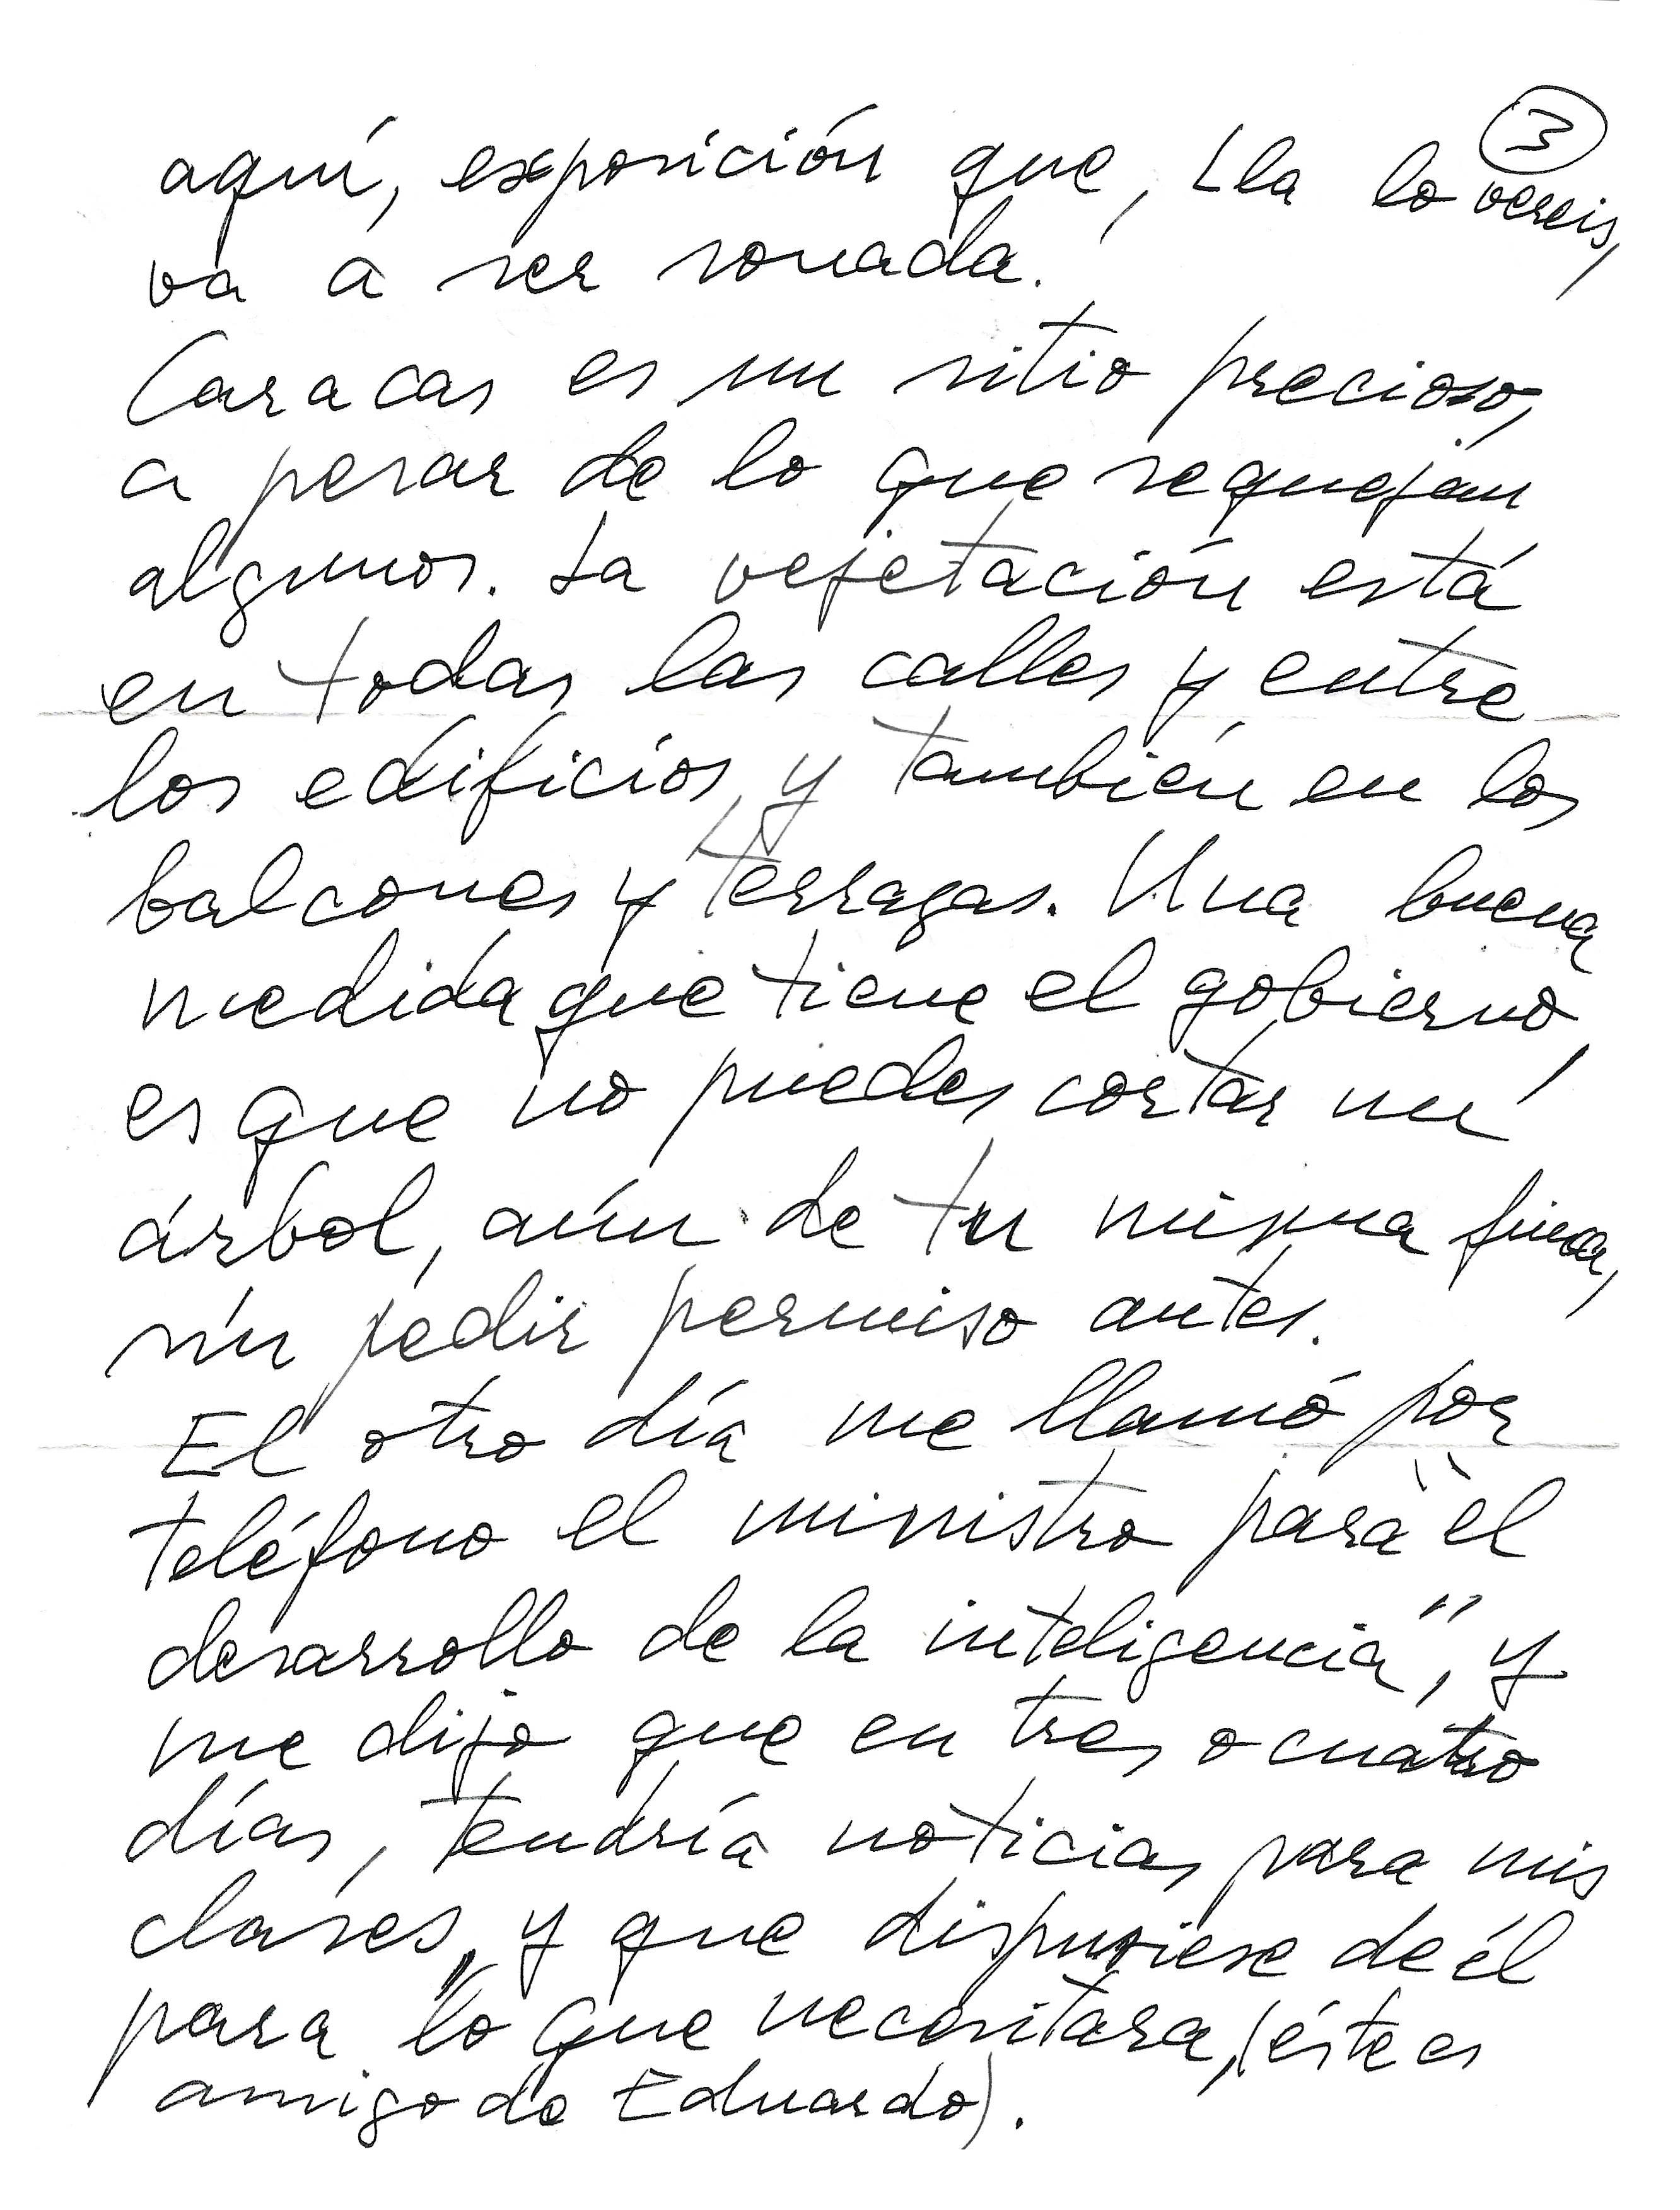 3
aquí, exposición que, lla lo vereis,
va a ser sonada.
Caracas es un sitio precioso,
a pesar de lo que se quejan
algunos. La vejetación está
en todas las calles y entre
los edificios, y también en los
balcones y terrazas. Una buena
medida que tiene el gobierno,
es que no puedes cortar un
árbol, aún de tu misma finca,
sin pedir permiso antes.
El otro día me llamó por
teléfono el ministro para "el
desarrollo de la inteligencia", y
me dijo que en tres o cuatro
días, tendría noticias para mis
clases, y que dispusiese de él
para "lo que necesitara, (éste es
amigo de Eduardo).